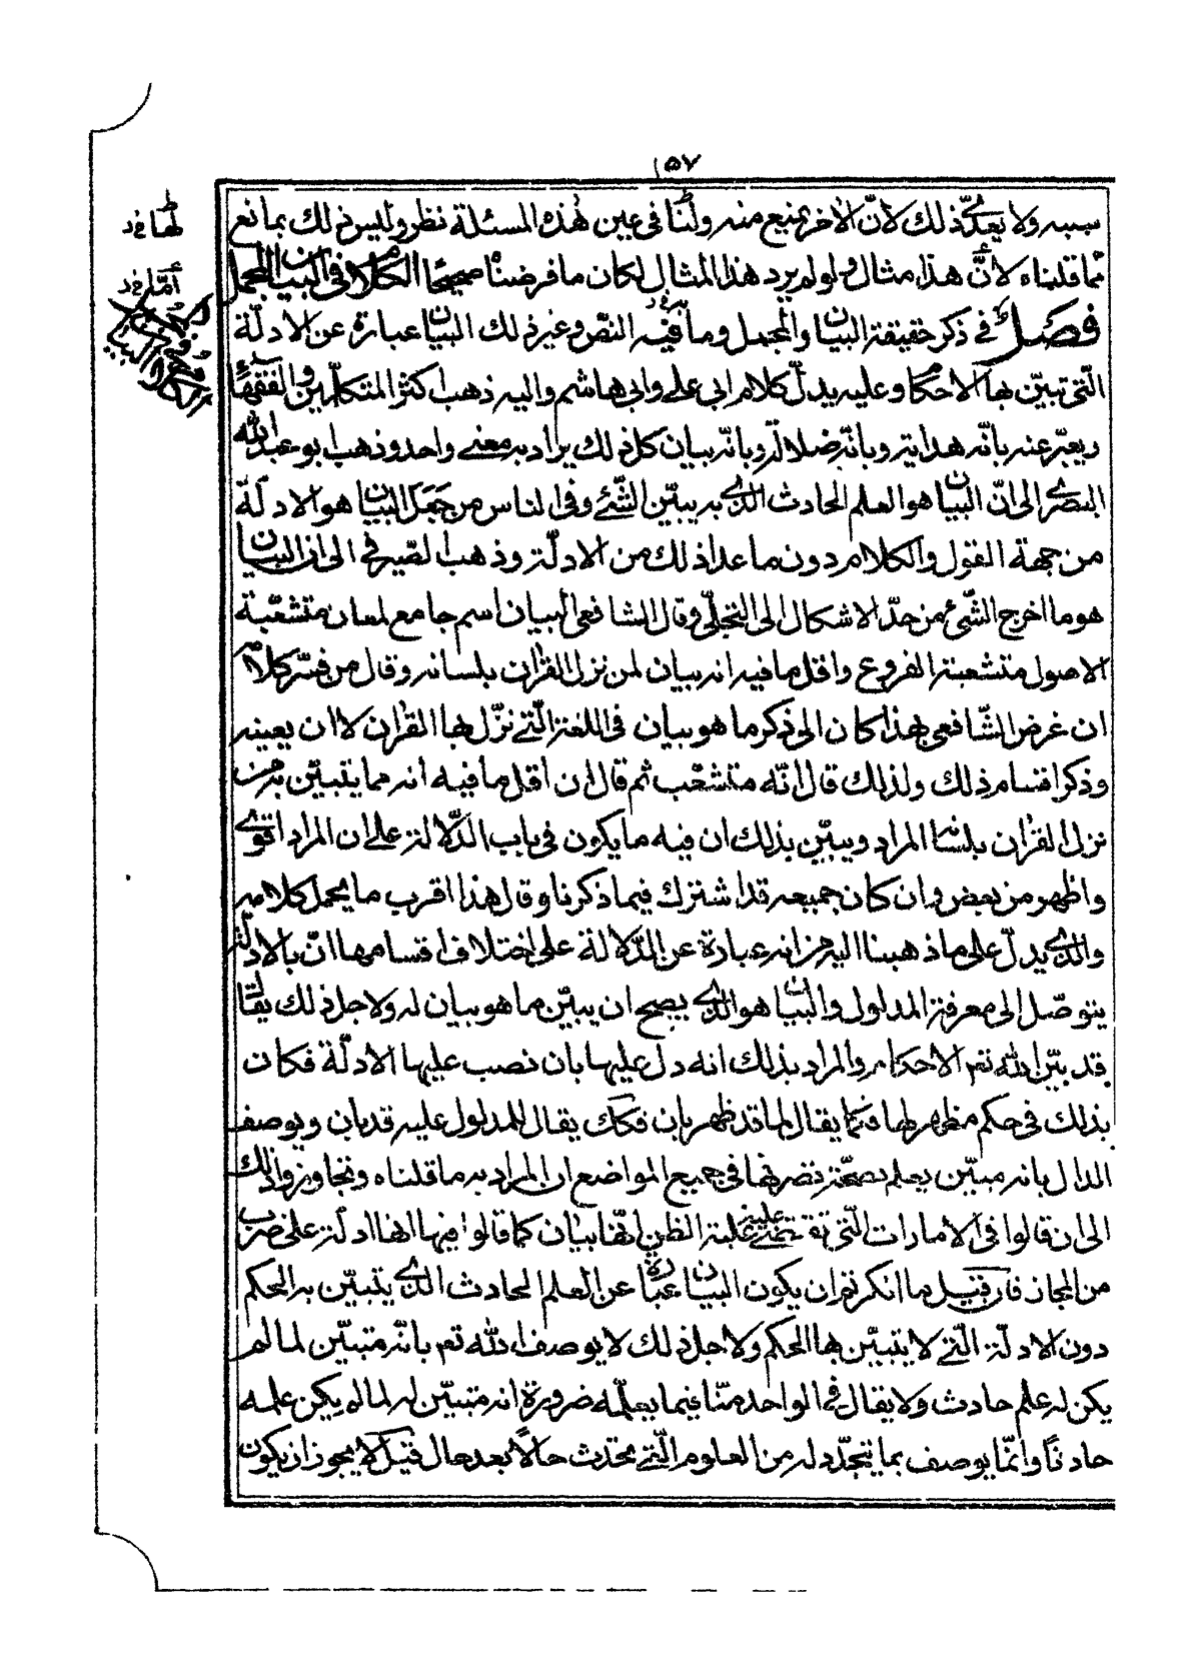 ١٥٧
سببه ولا يعدّى ذلك لانّ الاخر يمنع منه ولنا فى عين هذه المسئلة نظر وليس ذلك بمانع
ممّا قلناه لانّ هذا مثال ولو لم يرد هذا المثال لكان ما فرضناه صحيحًا الكلام فى البيان والمجمل
فصل فى ذكر حقيقة البيان والمجمل وما فيه النصّ وغير ذلك البيان عبارة عن الادلّة
الّتى تبيّن بها الاحكام وعليه يدلّ كلام ابى على وابى هاشم واليه ذهب اكثر المتكلّمين والفقهاء
ويعبّر عنه بانّه هداية وبانّه ضلالة وبانّه بيان كل ذلك يراد به معنى واحد وذهب ابو عبد الله
البصرى الى انّ البيان هو العلم الحادث الّذى به يبيّن الشّئ وفى الناس من جعل البيان هو الادلّة
من جهة القول والكلام دون ما عدا ذلك من الادلّة وذهب الصّيرفى الى ان البيان
هو ما اخرج الشّئ من حدّ الاشكال الى التجلّى وقال الشافعى البيان اسم جامع لمعان متشعّبة
الاصول متشعبة الفروع واقل ما فيه انه بيان لمن نزل القرآن بلسانه وقال من فسّر كلامه
ان غرض الشّافعى بهذا كان الى ذكر ما هو بيان فى اللغة الّتى نزّل بها القرآن لا ان يعينه
وذكر اقسام ذلك ولذلك قال انّه متشعّب ثم قال ان اقل ما فيه انه مما يتبيّن به من
نزل القرآن بلسانه المراد ويبيّن بذلك ان فيه ما يكون فى باب الدّلالة على ان المراد اقوى
واظهر من بعض وان كان جميعه قد اشترك فيما ذكرنا وقال هذا اقرب ما يحمل كلامه
والّذى يدلّ على ما ذهبنا اليه من انه عبارة عن الدّلالة على اختلاف اقسامها انّ بالادلّة
يتوصّل الى معرفة المدلول والبيان هو الّذى يصح ان يبيّن مما هو بيان له ولاجل ذلك يقال
قد بيّن الله تعم الاحكام والمراد بذلك انه دل عليها بان نصب عليها الادلّة فكان
بذلك فى حكم مظهر لها فكما يقال لما قد ظهر بان فكك يقال للمدلول عليه قد بان ويوصف
الدال بانه مبيّن يعلم بصحّة تصرفها فى جميع المواضع ان المراد به ما قلناه وتجاوزوا ذلك
الى ان قالوا فى الامارات الّتى تقتضى غلبة الظن انّها بيان كما قالوا فيها انها ادلّة على ضرب
من المجاز فان قيل ما انكرتم ان يكون البيان عبارة عن العلم الحادث الّذى يتبيّن به الحكم
دون الادلّة الّتى لا يتبيّن بها الحكم ولاجل ذلك لا يوصف الله تعم بانّه متبيّن لما لم
يكن له علم حادث ولا يقال فى الواحد منّا فيما يعلمه ضرورة انه متبيّن له لما لم يكن علمه
حادثًا وانّما يوصف بما يتجدّد له من العلوم الّتى تحدث حالًا بعد حال قيل له لا يجوز ان يكون